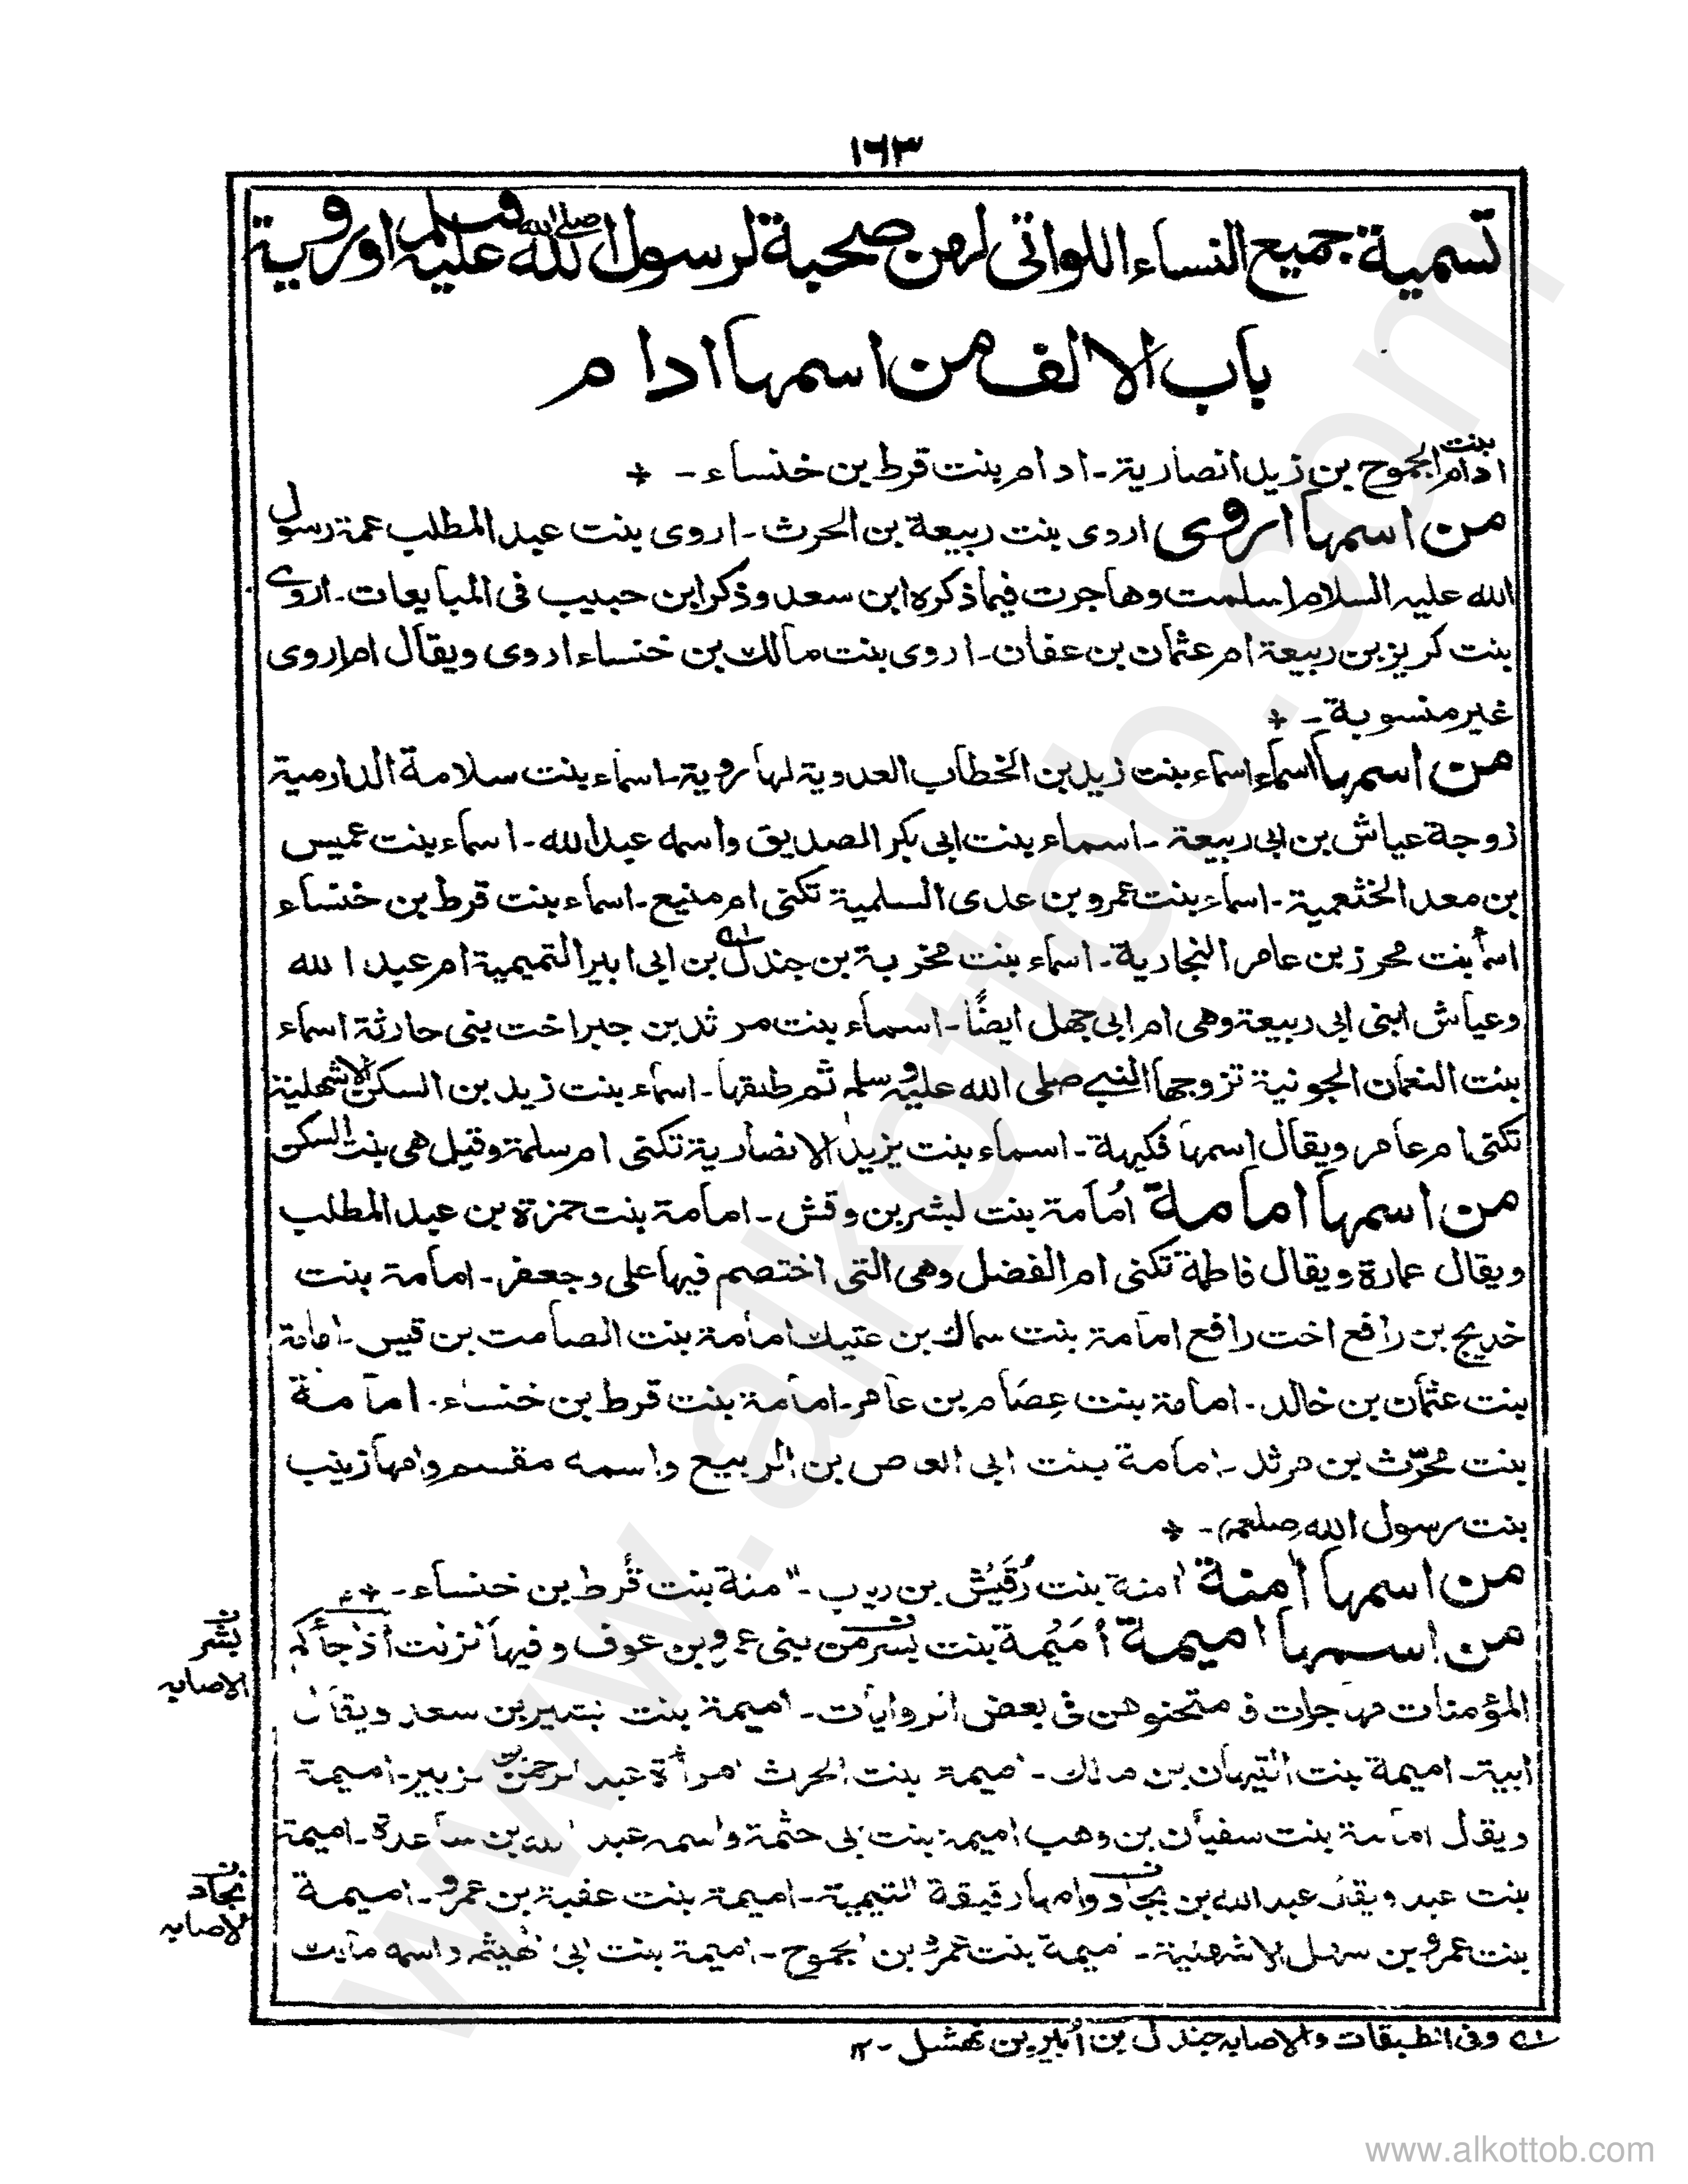 ١٦٣
تسمية جميع النساء اللواتى لهن صحبة لرسول الله صلى الله عليه وسلم او روية
باب الالف من اسمها ادام
ادام بنت الجموح بن زيد انصارية - ادام بنت قرط بن خنساء -
من اسمها اروى اروى بنت ربيعة بن الحرث - اروى بنت عبد المطلب عمة رسول
الله عليه السلام اسلمت وهاجرت فيما ذكره ابن سعد وذكر ابن حبيب فى المبايعات - اروى
بنت كريز بن ربيعة ام عثمان بن عفان - اروى بنت مالك بن خنساء اروى ويقال ام اروى
غير منسوبة -
من اسمها اسماء اسماء بنت زيد بن الخطاب العدوية لها روية - اسماء بنت سلامة الدارمية
زوجة عياش بن ابى ربيعة - اسماء بنت ابى بكر الصديق واسمه عبد الله - اسماء بنت عميس
بن معد الخثعمية - اسماء بنت عمرو بن عدى السلمية تكنى ام منيع - اسماء بنت قرط بن خنساء
اسماء بنت محرز بن عامر النجارية - اسماء بنت مخربة بن جندل بن ابى ابير التميمية ام عبد الله
وعياش ابنى ابى ربيعة وهى ام ابى جهل ايضًا - اسماء بنت مرثد بن جبر اخت بنى حارثة اسماء
بنت النعمان الجونية تزوجها النبى صلى الله عليه وسلم ثم طلقها - اسماء بنت زيد بن السكن الاشهلية
تكنى ام عامر ويقال اسمها فكيهة - اسماء بنت يزيد الانصارية تكنى ام سلمة وقيل هى بنت السكن
من اسمها امامة اُمامة بنت بشر بن وقش - امامة بنت حمزة بن عبد المطلب
ويقال عمارة ويقال فاطمة تكنى ام الفضل وهى التى اختصم فيها على وجعفر - امامة بنت
خديج بن رافع اخت رافع امامة بنت سماك بن عتيك امامة بنت الصامت بن قيس - امامة
بنت عثمان بن خالد - امامة بنت عِصَام بن عامر - امامة بنت قرط بن خنساء - امامة
بنت محرّث بن مرثد - امامة بنت ابى العاص بن الربيع واسمه مقسم وامها زينب
بنت رسول الله صلعم -
من اسمها امنة امنة بنت رُقَيْش بن رباب - امنة بنت قُرط بن خنساء -
من اسمها اميمة اُمَيْمة بنت بشر من بنى عمرو بن عوف وفيها نزلت اذا جاءكم
المؤمنات مهاجرات فامتحنوهن فى بعض الروايات - اميمة بنت بشير بن سعد ويقال
ابية - اميمة بنت التيهان بن مالك - اميمة بنت الحرث امرأة عبد الرحمن بن الزبير - اميمة
ويقال امامة بنت سفيان بن وهب اميمة بنت ابى حثمة واسمه عبد الله بن ساعدة - اميمة
بنت عبد ويقال عبد الله بن بجاد وامها رقيقة التيمية - اميمة بنت عقبة بن عمرو - اميمة
بنت عمرو بن سهل الاشهلية - اميمة بنت عمرو بن الجموح - اميمة بنت ابى الهيثم واسمه مالك
بشر
الاصابه
نجاد
الاصابه
وفى الطبقات والاصابه جندل بن اُبَير بن نهشل - ١٢
www.alkottob.com
www.alkottob.com